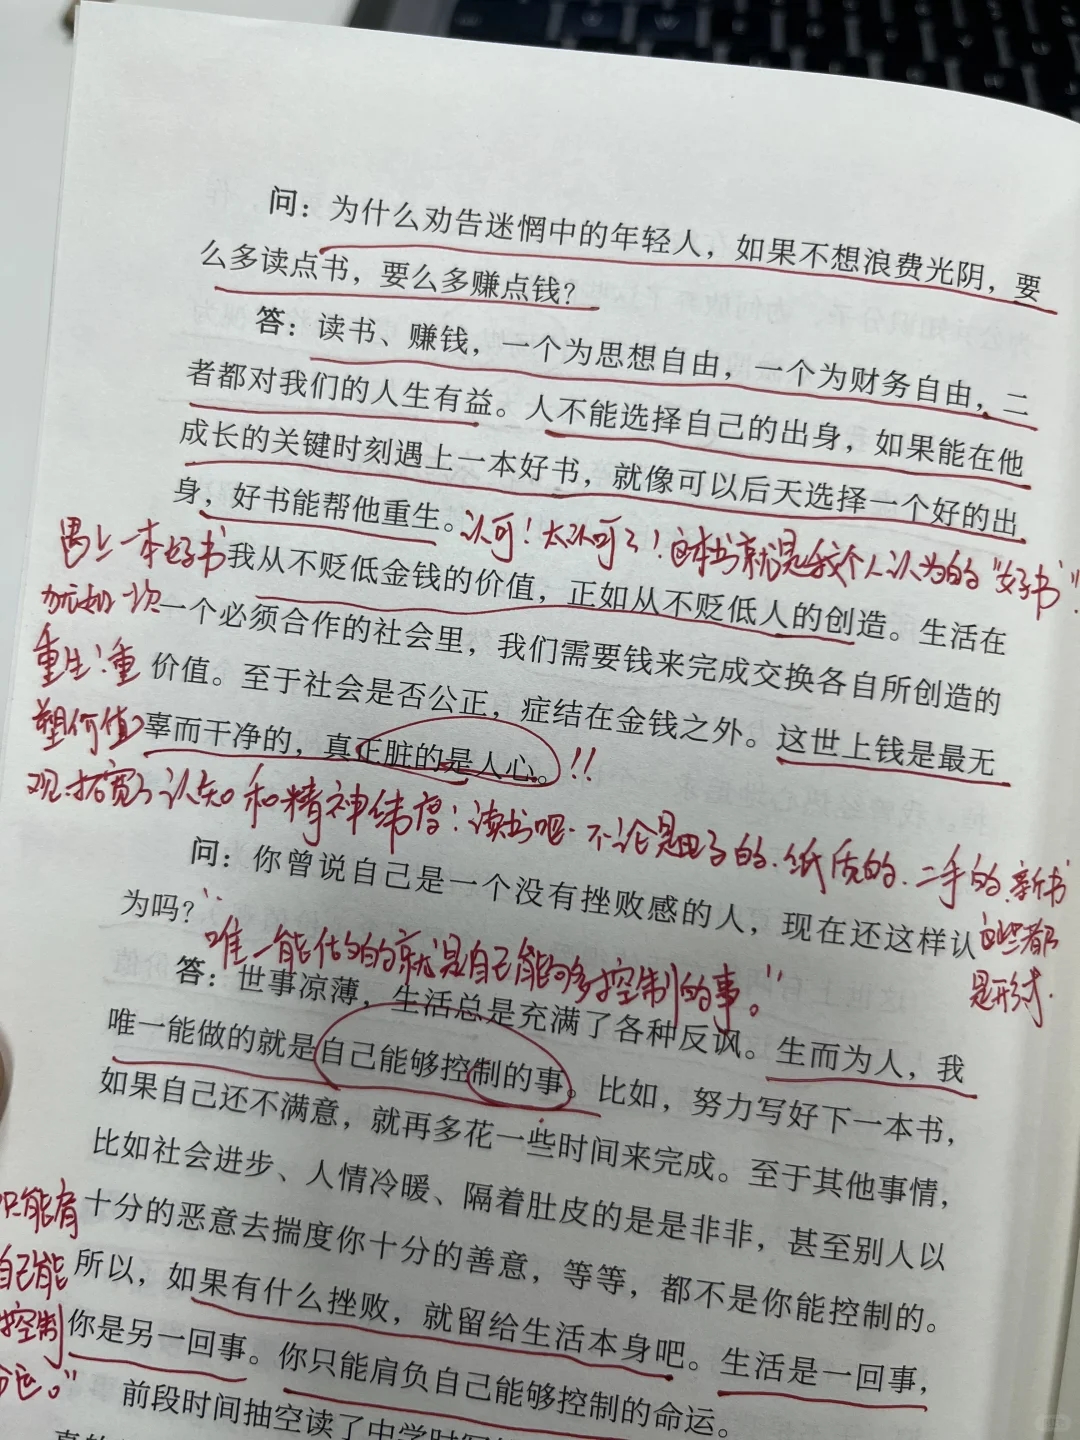 问：为什么劝告迷惘中的年轻人，如果不想浪费光阴，要
么多读点书，要么多赚点钱？
答：读书、赚钱，一个为思想自由，一个为财务自由，二
者都对我们的人生有益。人不能选择自己的出身，如果能在他
成长的关键时刻遇上一本好书，就像可以后天选择一个好的出
身，好书能帮他重生。
认可！太认可了！这本书就是我个人认为的“好书”！
遇上一本好书
就如一次
重生：重
塑价值
观，拓宽了认知和精神纬度：读书吧.不论是电子的.纸质的.二手的.新书
这些都
是形式.
我从不贬低金钱的价值，正如从不贬低人的创造。生活在
一个必须合作的社会里，我们需要钱来完成交换各自所创造的
价值。至于社会是否公正，症结在金钱之外。这世上钱是最无
辜而干净的，真正脏的是人心。!!
问：你曾说自己是一个没有挫败感的人，现在还这样认
为吗？
“唯一能做的就是自己能够控制的事。”
答：世事凉薄，生活总是充满了各种反讽。生而为人，我
唯一能做的就是自己能够控制的事。比如，努力写好下一本书，
如果自己还不满意，就再多花一些时间来完成。至于其他事情，
比如社会进步、人情冷暖、隔着肚皮的是是非非，甚至别人以
十分的恶意去揣度你十分的善意，等等，都不是你能控制的。
所以，如果有什么挫败，就留给生活本身吧。生活是一回事，
你是另一回事。你只能肩负自己能够控制的命运。
只能肩
自己能
控制
命运。”
前段时间抽空读了中学时写